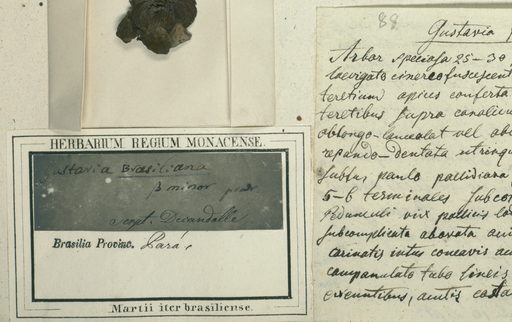 HERBARIUM REGIUM MONACENSE.
ustavia Brasiliana
β minor
script. Decandolle
Brasilia Provinc. Para,
Martii iter brasiliense.
88
Gustavia
Arbor speciosa 25-30
laevigato cinereofuscescent
teretium apice conferta
teretibus supra canalicu
oblongo-lanceolat vel obo
repando-dentata utrinqu
subtus paulo pallidiora
5-6 terminales subcor
Pedunculi vix pollicis lo
subcomplicata obovata
carinatis intus concavis
campanulato tubo lineis
costa